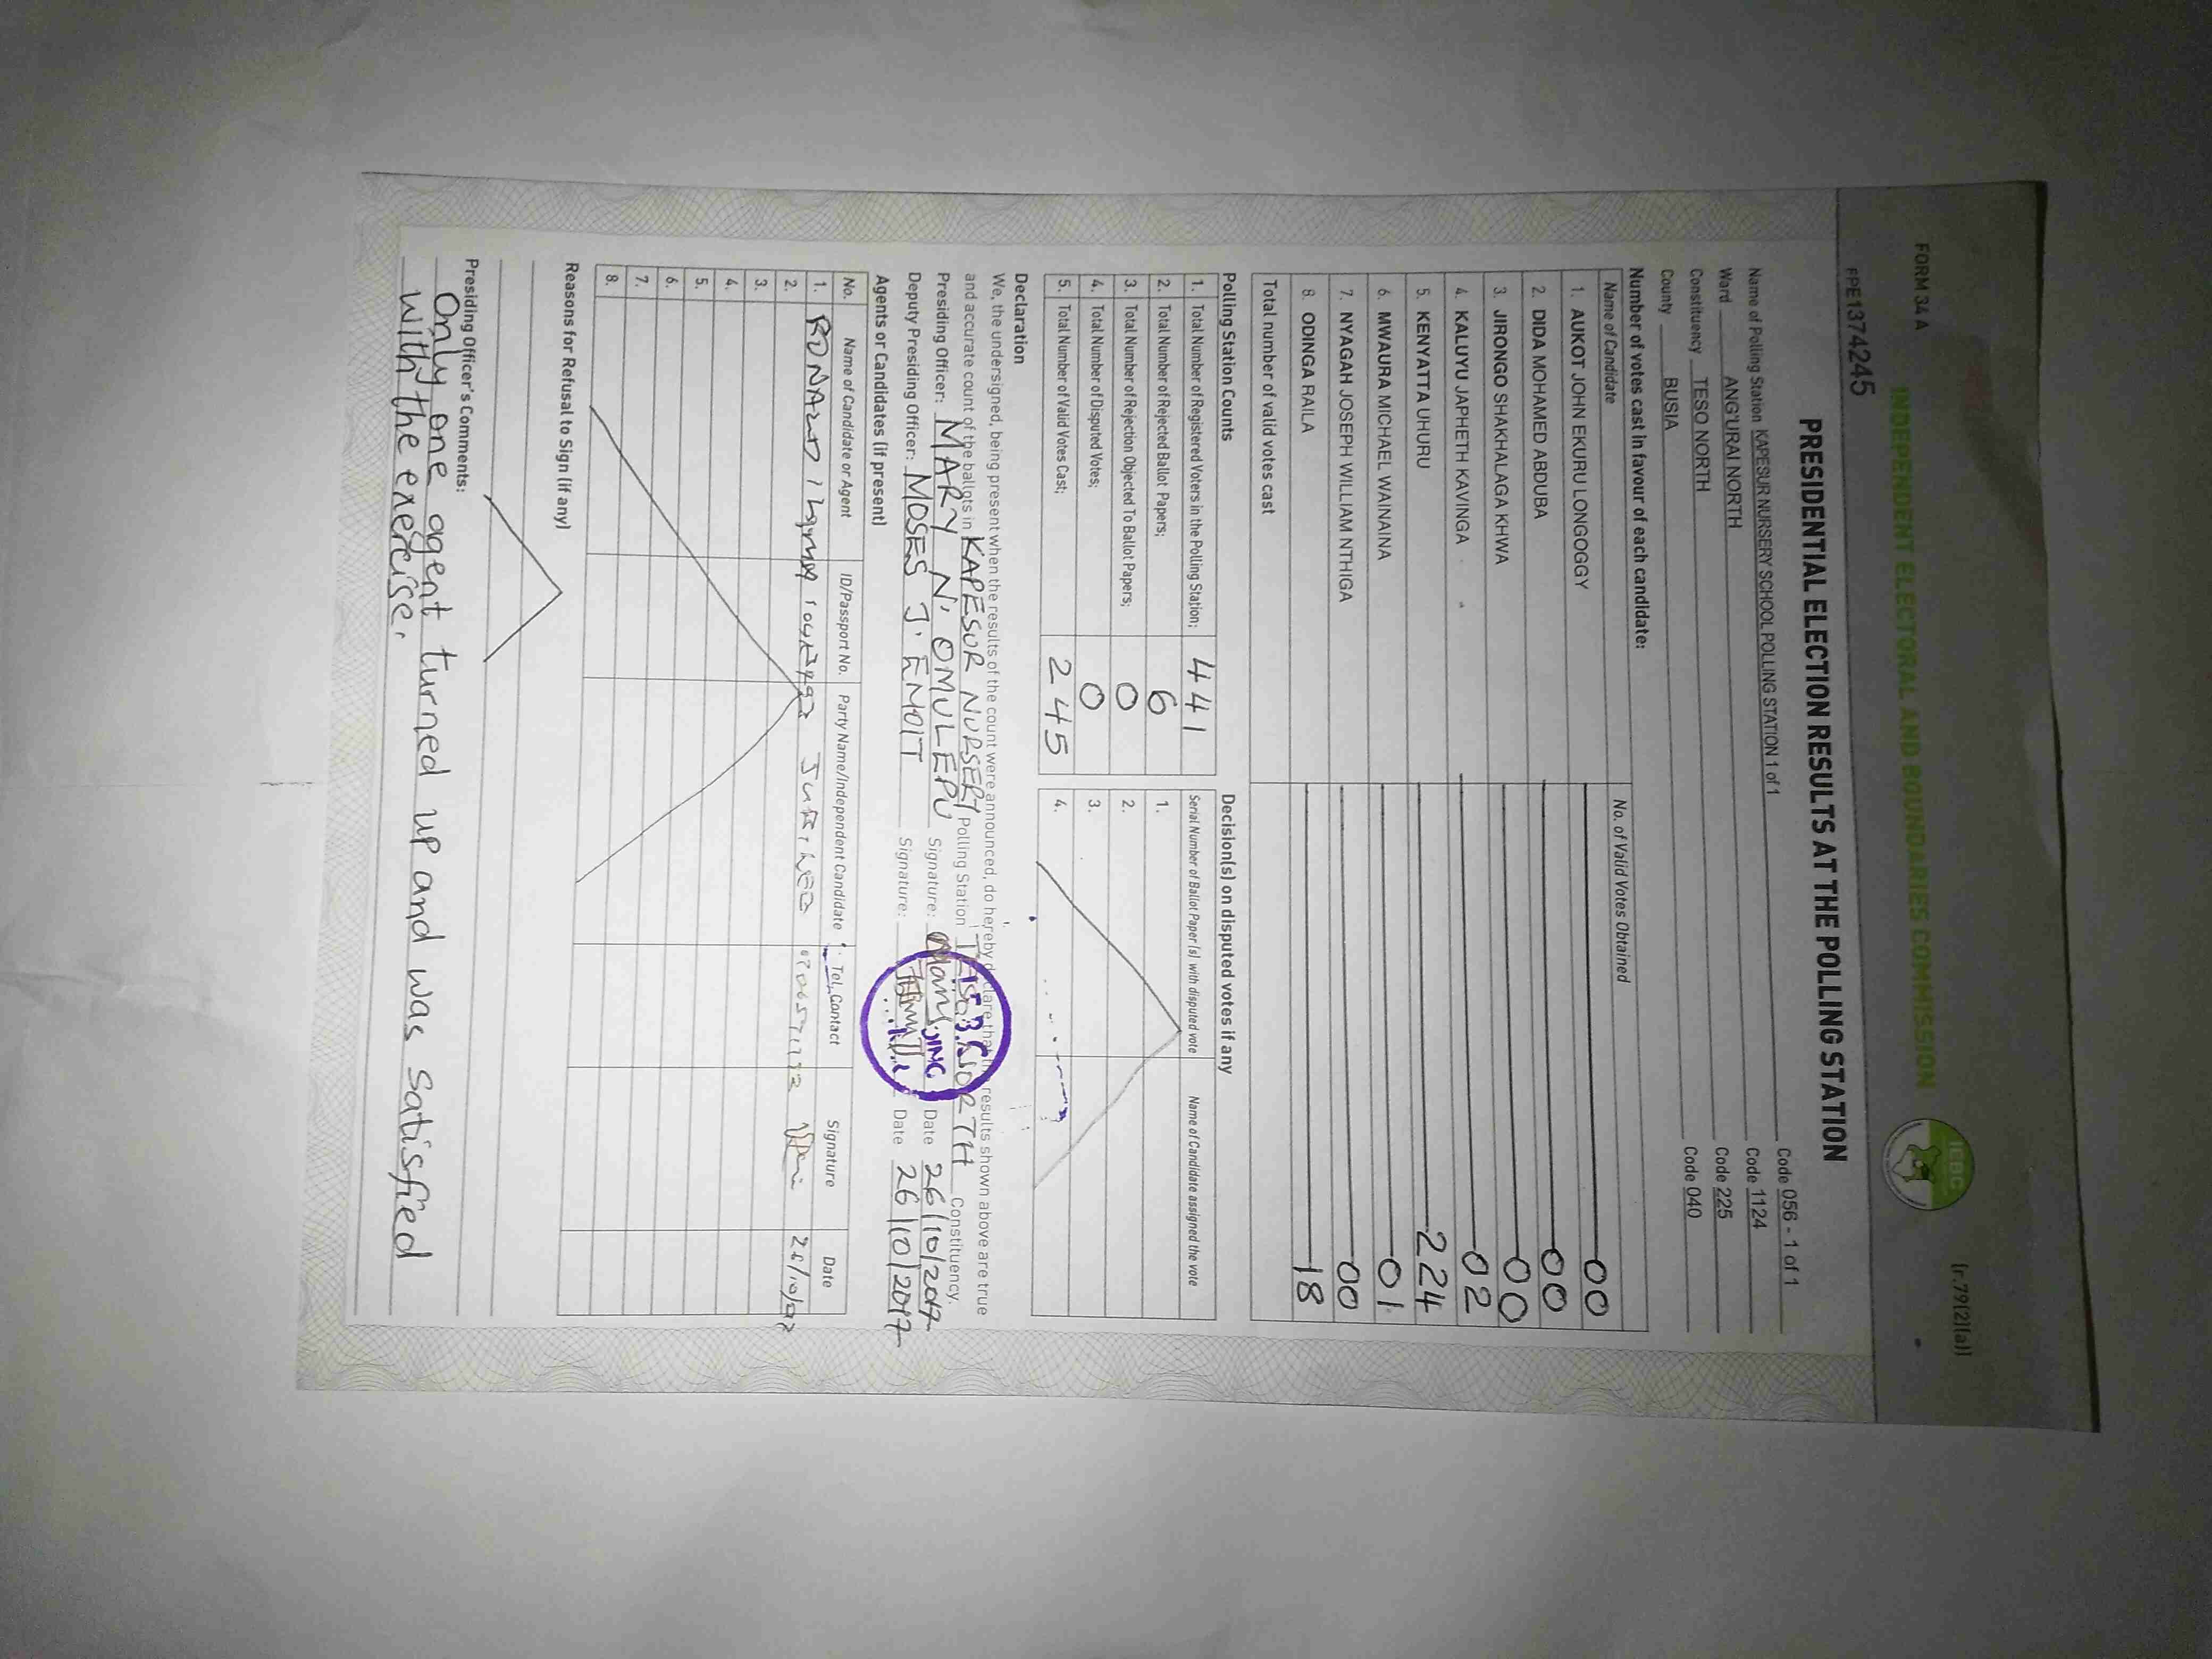 FORM 34 A
[r.79(2)(a)]
INDEPENDENT ELECTORAL AND BOUNDARIES COMMISSION
IEBC
PPE1374245
PRESIDENTIAL ELECTION RESULTS AT THE POLLING STATION
Name of Polling Station KAPESUR NURSERY SCHOOL POLLING STATION 1 of 1 Code 056 - 1 of 1
Ward ANG'URAI NORTH Code 1124
Constituency TESO NORTH Code 225
County BUSIA Code 040
Number of votes cast in favour of each candidate:
Name of Candidate No. of Valid Votes Obtained
1. AUKOT JOHN EKURU LONGOGGY 00
2. DIDA MOHAMED ABDUBA 00
3. JIRONGO SHAKHALAGA KHWA 00
4. KALUYU JAPHETH KAVINGA 02
5. KENYATTA UHURU 224
6. MWAURA MICHAEL WAINAINA 01
7. NYAGAH JOSEPH WILLIAM NTHIGA 00
8. ODINGA RAILA 18
Total number of valid votes cast
Polling Station Counts
1. Total Number of Registered Voters in the Polling Station; 441
2. Total Number of Rejected Ballot Papers; 6
3. Total Number of Rejection Objected To Ballot Papers; 0
4. Total Number of Disputed Votes; 0
5. Total Number of Valid Votes Cast; 245
Decision(s) on disputed votes if any
Serial Number of Ballot Paper(s) with disputed vote Name of Candidate assigned the vote
1.
2.
3.
4.
Declaration
We, the undersigned, being present when the results of the count were announced, do hereby declare that the results shown above are true
and accurate count of the ballots in KAPESUR NURSERY Polling Station TESO NORTH Constituency.
Presiding Officer: MARY N. OMULEPU Signature: Date 26/10/2017
Deputy Presiding Officer: MOSES J. EMOIT Signature: Date 26/10/2017
Agents or Candidates (if present)
No. Name of Candidate or Agent ID/Passport No. Party Name/Independent Candidate Tel. Contact Signature Date
1. JUBILEE
2.
3.
4.
5.
6.
7.
8.
Reasons for Refusal to Sign (if any)
Presiding Officer's Comments:
Only one agent turned up and was satisfied
with the exercise.